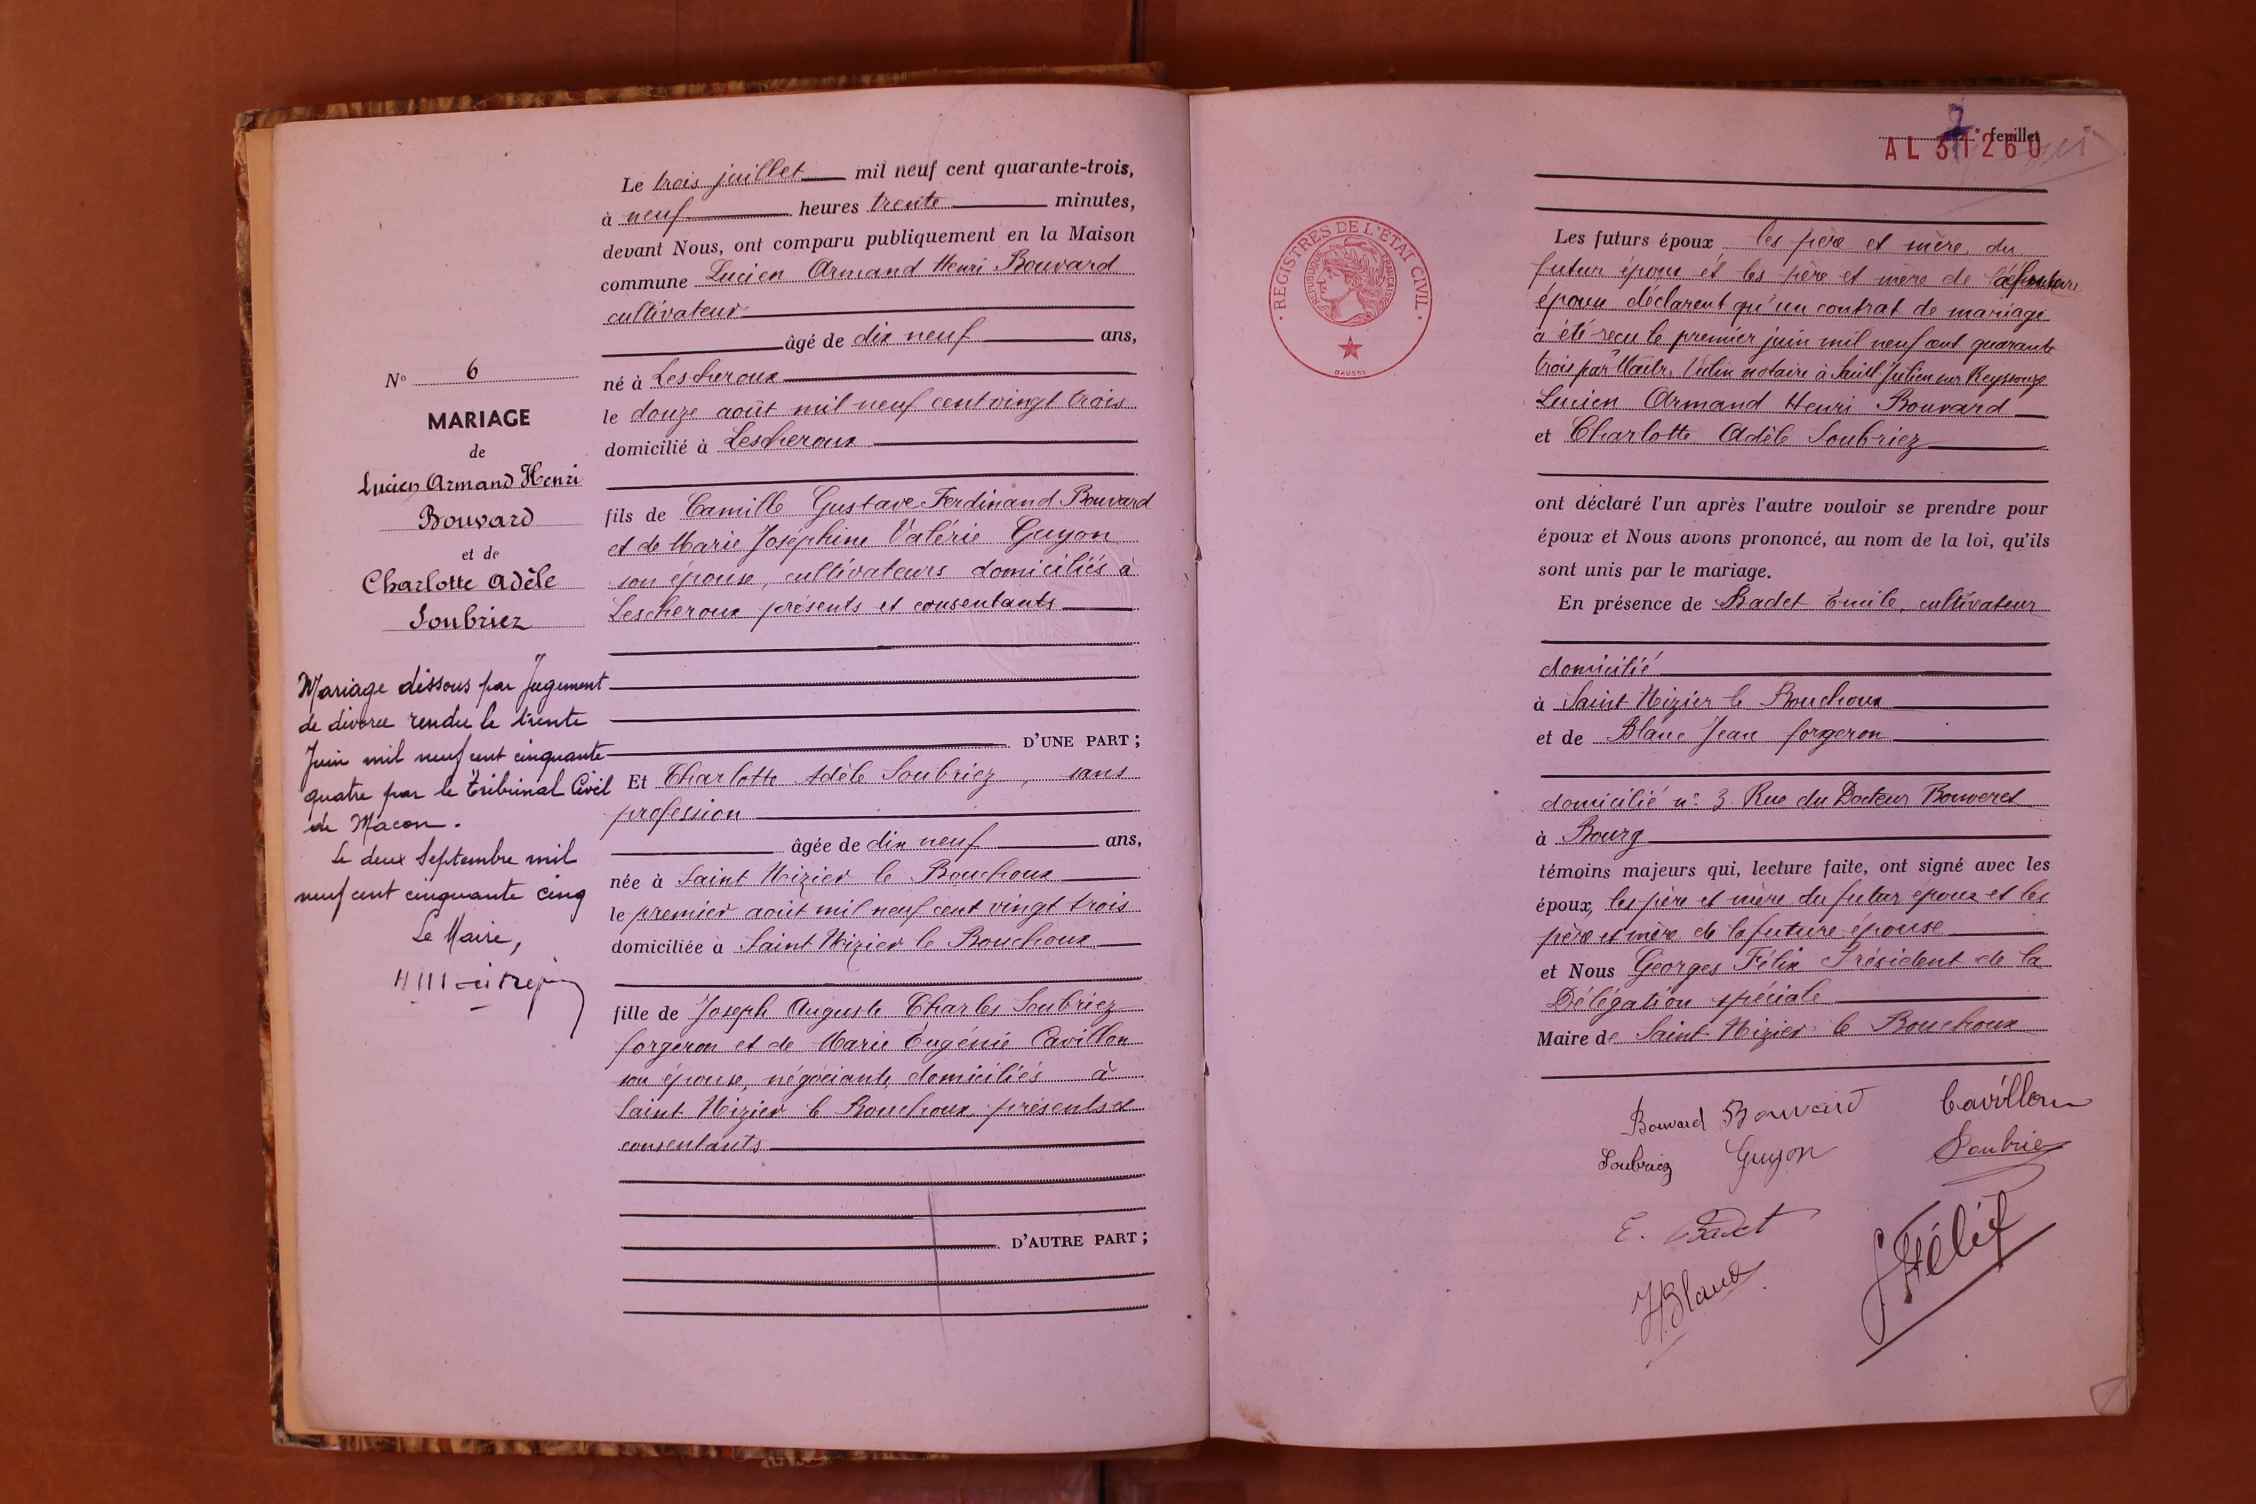 Le trois juillet mil neuf cent quarante-trois,
à neuf heures trente minutes,
devant Nous, ont comparu publiquement en la Maison
commune Lucien Armand Henri Bouvard
cultivateur
âgé de dix neuf ans,
né à Lescheroux
le douze août mil neuf cent vingt trois
domicilié à Lescheroux
fils de Camille Gustave Ferdinand Bouvard
et de Marie Joséphine Valérie Guyon
son épouse, cultivateurs domiciliés à
Lescheroux présents et consentants
D'UNE PART ;
Et Charlotte Adèle Soubriez, sans
profession
âgée de dix neuf ans,
née à Saint Nizier le Bouchoux
le premier août mil neuf cent vingt trois
domiciliée à Saint Nizier le Bouchoux
fille de Joseph Auguste Charles Soubriez
forgeron et de Marie Eugénie Cavillon
son épouse, négociants domiciliés à
Saint Nizier le Bouchoux présents et
consentants
D'AUTRE PART ;
N° 6
MARIAGE
de
Lucien Armand Henri
Bouvard
et de
Charlotte Adèle
Soubriez
Mariage dissous par Jugement
de divorce rendu le trente
Juin mil neuf cent cinquante
quatre par le Tribunal Civil
de Macon.
Le deux Septembre mil
neuf cent cinquante cinq
Le Maire,
7e feuillet
AL 31260
REGISTRES DE L'ETAT CIVIL
REPUBLIQUE FRANCAISE
Les futurs époux les père et mère du
futur époux et les père et mère de la future
épouse déclarent qu'un contrat de mariage
a été reçu le premier juin mil neuf cent quarante
trois par Maître notaire à Saint Julien sur Reyssouze
Lucien Armand Henri Bouvard
et Charlotte Adèle Soubriez
ont déclaré l'un après l'autre vouloir se prendre pour
époux et Nous avons prononcé, au nom de la loi, qu'ils
sont unis par le mariage.
En présence de Badet Emile, cultivateur
domicilié
à Saint Nizier le Bouchoux
et de Blanc Jean forgeron
domicilié n° 3 Rue du Docteur Bouveret
à Bourg
témoins majeurs qui, lecture faite, ont signé avec les
époux, les père et mère du futur époux et les
père et mère de la future épouse
et Nous Georges Félix Président de la
Délégation spéciale
Maire de Saint Nizier le Bouchoux
Bouvard Bouvard Cavillon
Soubriez Guyon Soubriez
E. Badet
J. Blanc
G. Félix